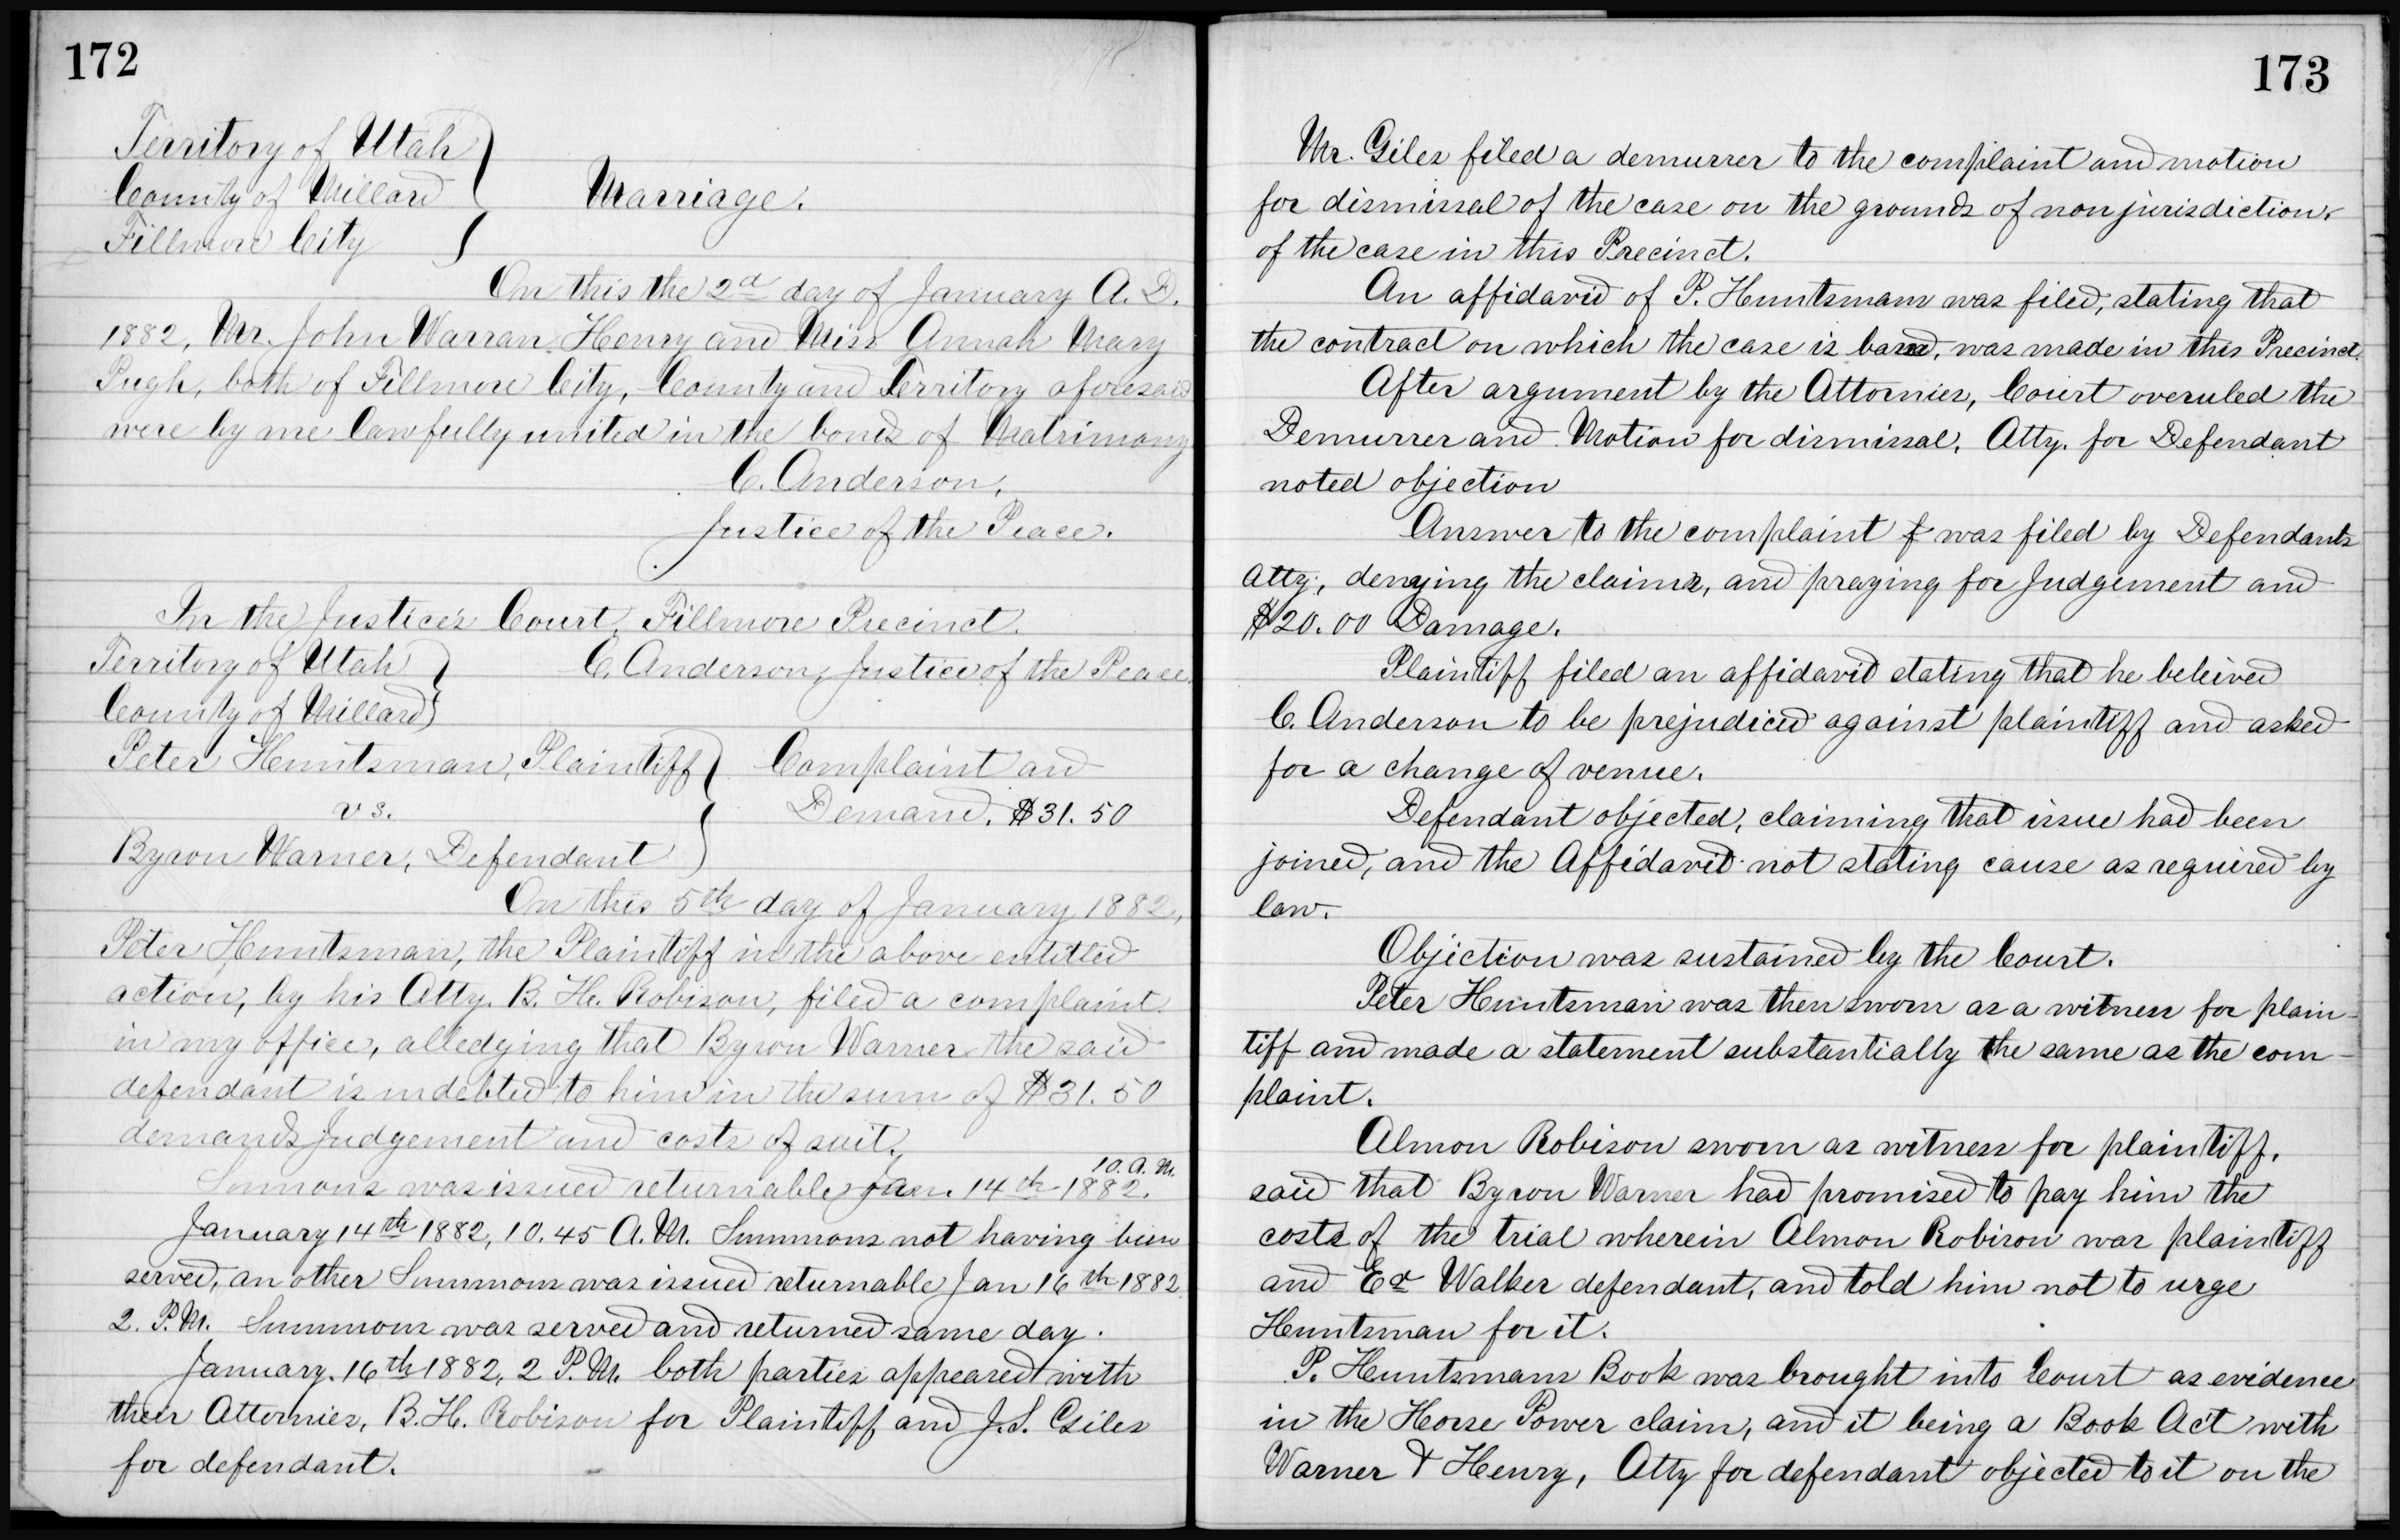 172
Territory of Utah
County of Millard
Marriage.
Fillmore City
On this the 2d day of January A. D.
1882, Mr. John Warran Henry and Miss Annah Mary
Pugh, both of Fillmore City, County and Territory aforesaid
were by me lawfully united in the bonds of Matrimony
C. Anderson,
Justice of the Peace.
In the Justice's Court, Fillmore Precinct.
Territory of Utah
C. Anderson, Justice of the Peace.
County of Millard
Peter Huntsman, Plaintiff
Complaint and
vs.
Demand. $31.50
Byron Warner, Defendant
On this 5th day of January 1882,
Peter Huntsman, the Plaintiff in the above entitled
action, by his Atty. B. H. Robison, filed a complaint
in my office, alledging that Byron Warner the said
defendant is indebted to him in the sum of $31.50
demands judgement and costs of suit.
Summons was issued returnable Jan. 14th 1882. 10. A. M.
January 14th 1882, 10.45 A. M. Summons not having been
served, an other Summons was issued returnable Jan 16th 1882
2. P. M. Summons was served and returned same day.
January. 16th 1882, 2 P. M. both parties appeared with
their Attornies, B. H. Robison for Plaintiff and J. S. Giles
for defendant.
173
Mr. Giles filed a demurrer to the complaint and motion
for dismissal of the case on the grounds of non jurisdiction.
of the case in this Precinct.
An affidavid of P. Huntsmam was filed, stating that
the contract on which the case is based, was made in this Precinct.
After argument by the Attornies, Court overuled the
Demurrer and Motion for dismissal. Atty. for Defendant
noted objection
Answer to the complaint f was filed by Defendants
Atty., denying the claims, and praying for Judgement and
$20.00 Damage.
Plaintiff filed an affidavit stating that he beleived
C. Anderson to be prejudiced against plaintiff and asked
for a change of venue.
Defendant objected, claiming that issue had been
joined, and the Affidavit not stating cause as required by
law.
Objection was sustained by the Court.
Peter Huntsman was then sworn as a witness for plain-
tiff and made a statement substantially the same as the com-
plaint.
Almon Robison sworn as witness for plaintiff.
said that Byron Warner had promised to pay him the
costs of the trial wherein Almon Robison was plaintiff
and Ed Walker defendant, and told him not to urge
Huntsman for it.
P. Huntsmans Book was brought into Court as evidence
in the Horse Power claim, and it being a Book Act with
Warner & Henry, Atty for defendant objected to it on the